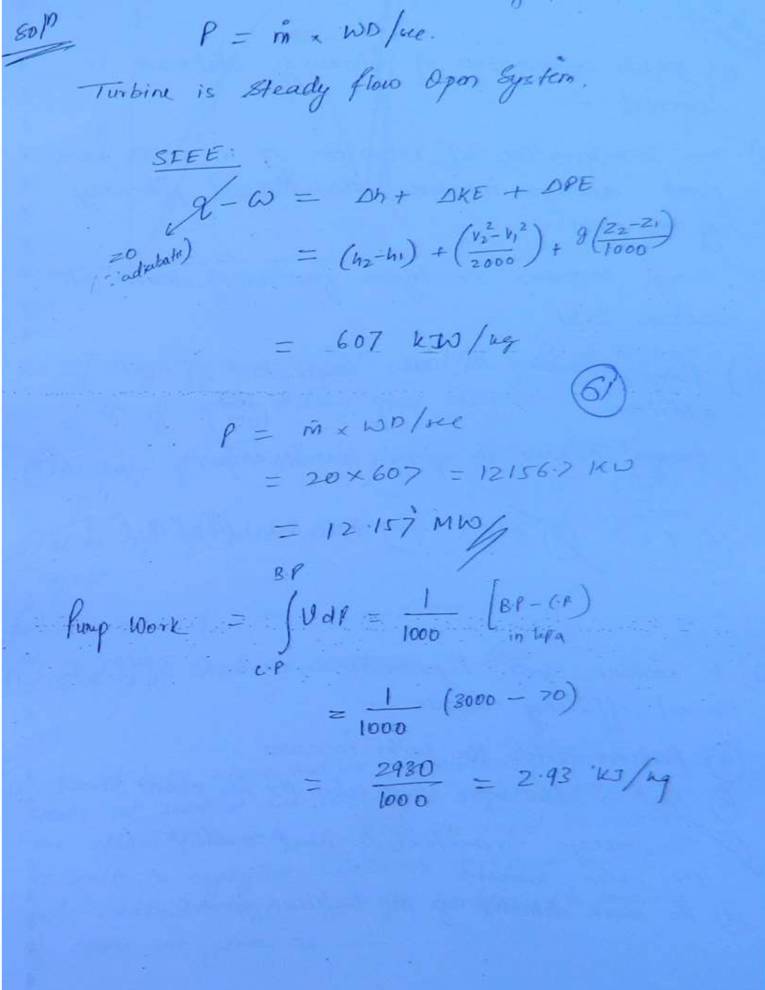 Solⁿ
P = ṁ × WD/sec.
Turbine is Steady flow Open System.
SFEE:
q - w = Δh + ΔKE + ΔPE
=0
(∵ adiabatic)
= (h₂-h₁) + (V₂²-V₁²/2000) + g(Z₂-Z₁/1000)
= 607 kJ/kg
61
P = ṁ × WD/sec
= 20×607 = 12156.7 KW
= 12.157 MW
Pump Work = ∫ VdP = 1/1000 [BP - CP)
B.P
C.P
in kpa
= 1/1000 (3000 - 70)
= 2930/1000 = 2.93 kJ/kg